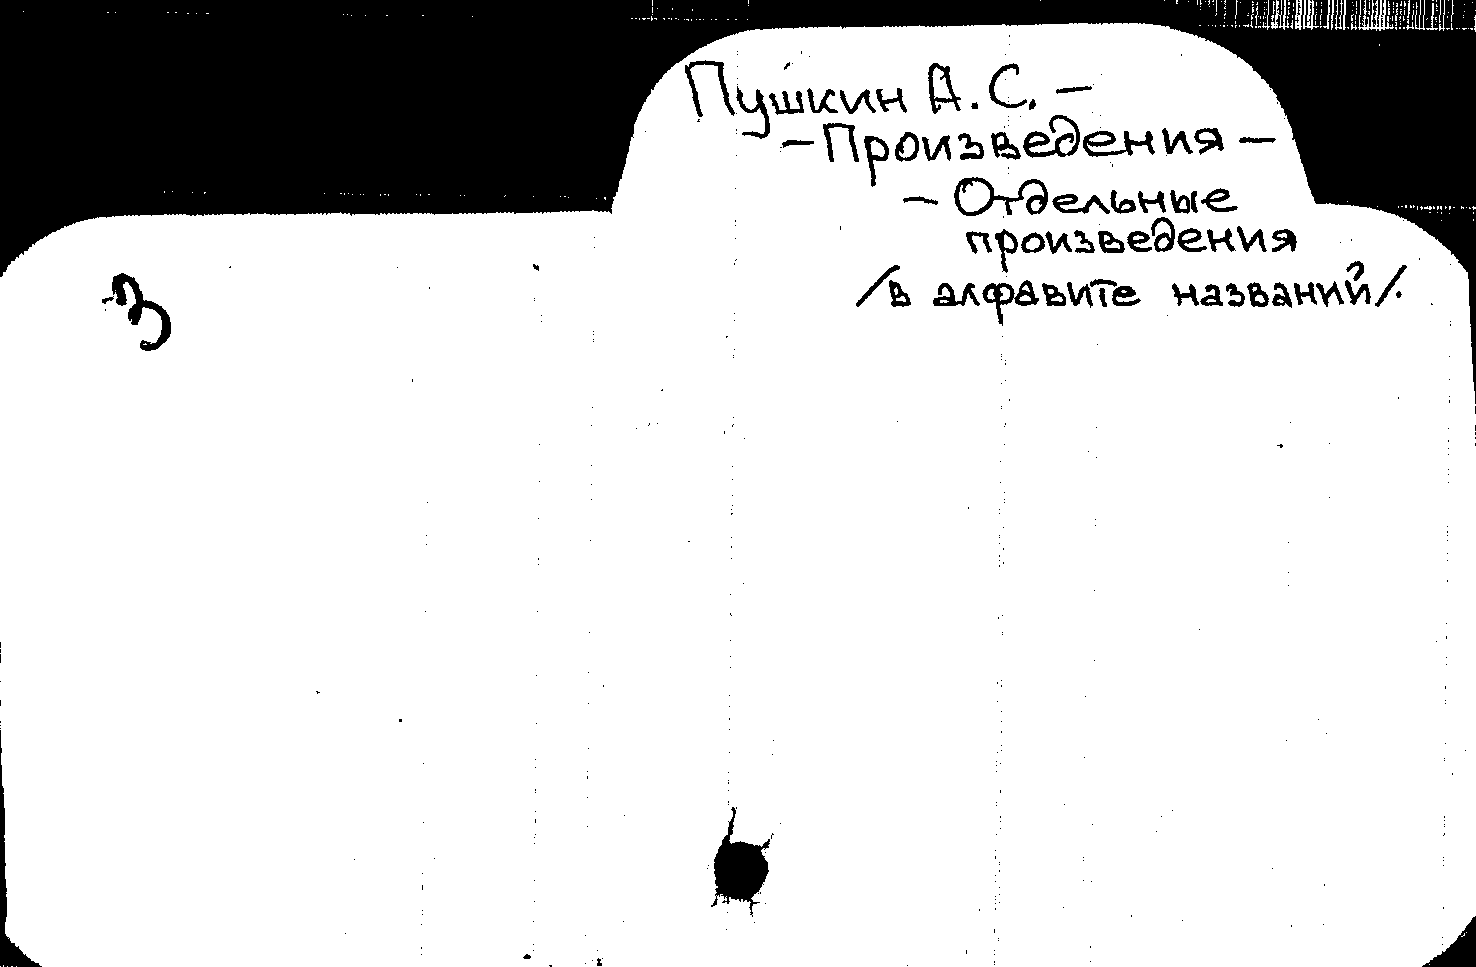 Пушкин А.С. —
— Произведения —
— Отдельные
произведения
/в алфавите названий/.
З